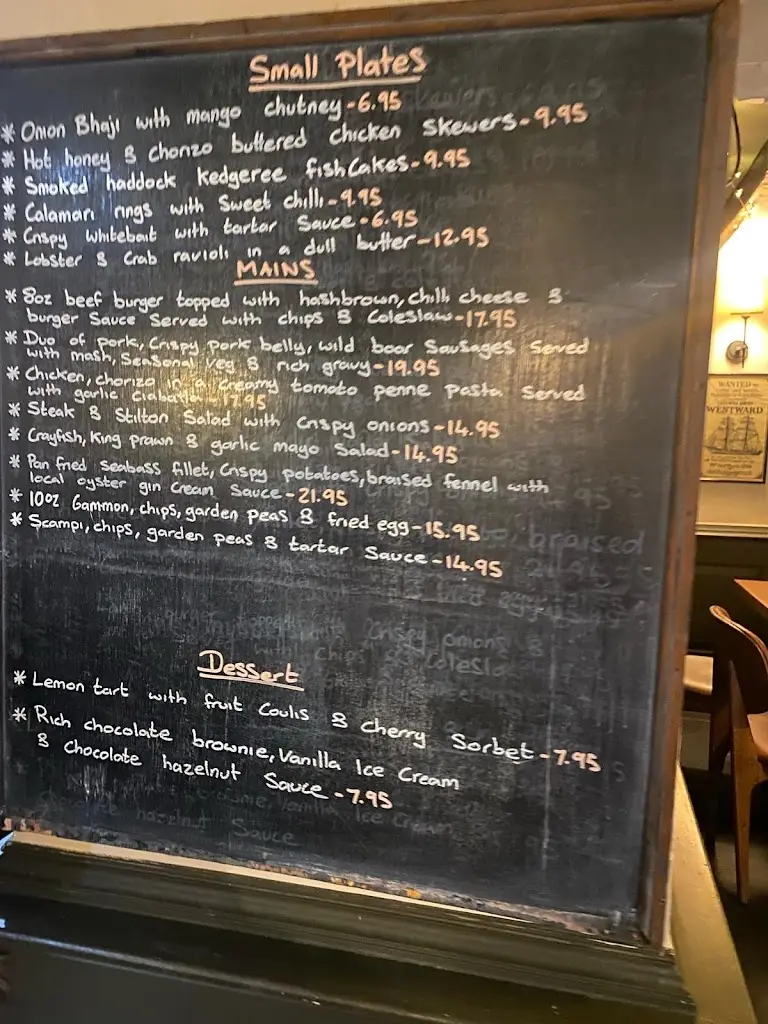 Small Plates
* Onion Bhaji with mango chutney-6.95
* Hot honey & Chorizo buttered chicken Skewers-9.95
* Smoked haddock kedgeree fishCakes-9.95
* Calamari rings with Sweet chilli-9.95
* Crispy Whitebait with tartar Sauce-6.95
* Lobster & Crab ravioli in a dull butter-12.95
MAINS
* 8oz beef burger topped with hashbrown, chilli cheese &
burger Sauce Served with chips & Coleslaw-17.95
* Duo of pork, Crispy pork belly, wild boar Sausages Served
with mash, Seasonal veg & rich gravy-19.95
* Chicken, chorizo in a creamy tomato penne pasta Served
with garlic ciabatta-17.95
* Steak & Stilton Salad with Crispy onions-14.95
* Crayfish, King prawn & garlic mayo Salad-14.95
* Pan fried seabass fillet, Crispy potatoes, braised fennel with
local oyster gin Cream Sauce-21.95
* 10oz Gammon, chips, garden peas & fried egg-15.95
* Scampi, chips, garden peas & tartar Sauce-14.95
Dessert
* Lemon tart with fruit Coulis & Cherry Sorbet-7.95
* Rich chocolate brownie, Vanilla Ice Cream
& Chocolate hazelnut Sauce-7.95
WANTED
WESTWARD